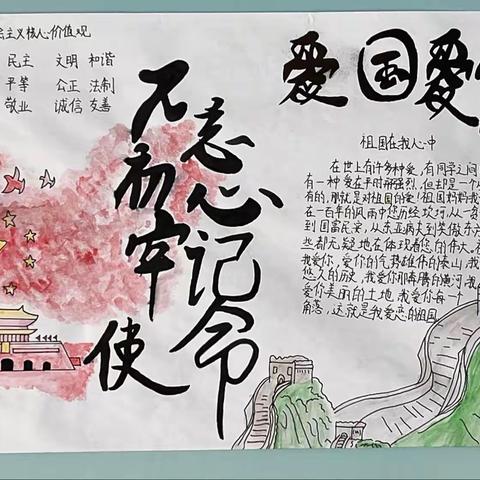 会主义核心价值观
民主 文明 和谐
平等 公正 法制
敬业 诚信 友善
不忘
初心
牢记
使命
爱国爱
祖国在我心中
在世上有许多种爱，有同学之间
有一种爱在平时那强烈，但却是一个
有的，那就是对祖国的爱！祖国妈妈我
在一百年的风雨中您历经坎坷，从一穷
到国富民安，从东亚病夫到笑傲东方
些都无疑地在体现着您的伟大。
我爱你，爱你的气势雄伟的泰山，我
悠久的历史，我爱你那奔腾的黄河，我
爱你美丽的土地，我爱你每一个
角落，这就是我爱恋的祖国